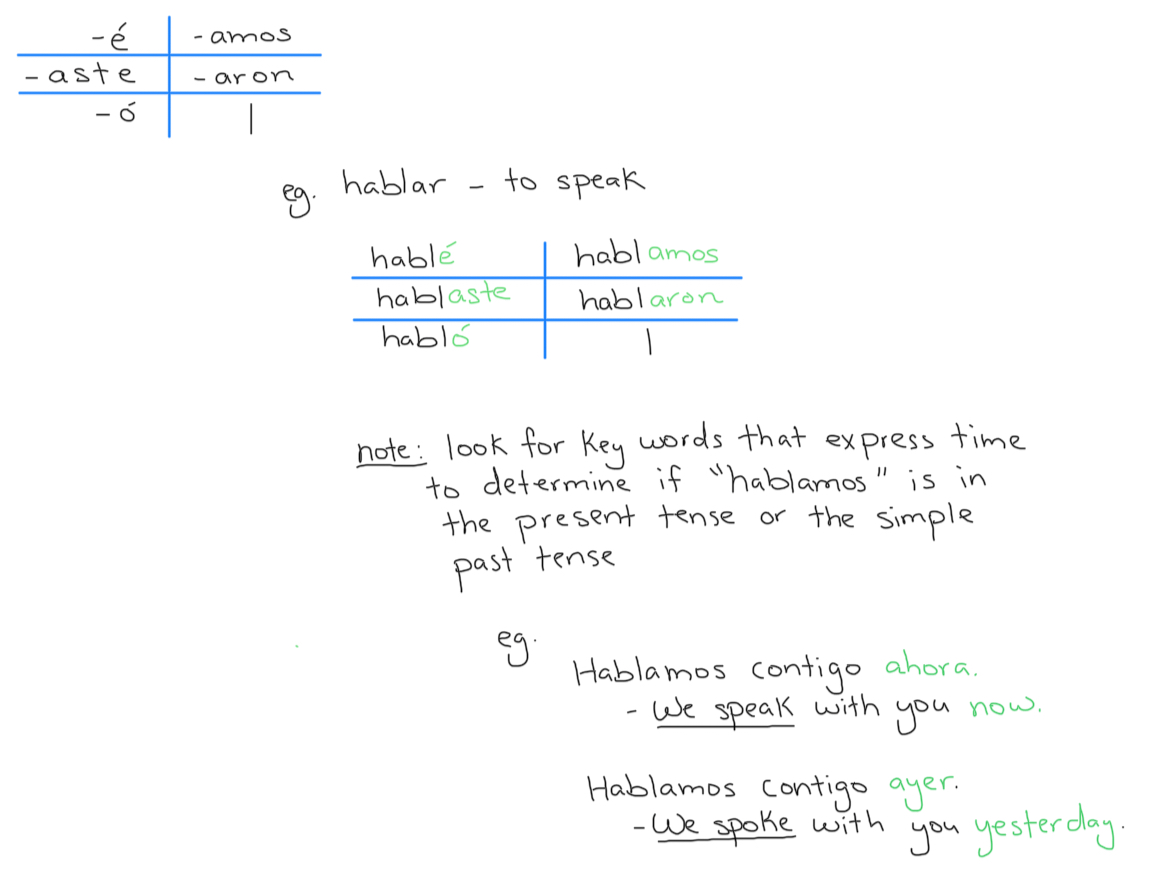 -é -amos
-aste -aron
-ó |
eg. hablar - to speak
hablé hablamos
hablaste hablaron
habló |
note: look for key words that express time
to determine if "hablamos" is in
the present tense or the simple
past tense
eg.
Hablamos contigo ahora.
- We speak with you now.
Hablamos contigo ayer.
- We spoke with you yesterday.